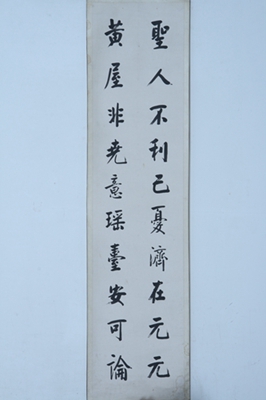 聖人不利己憂濟在元元
黃屋非堯意瑤臺安可論